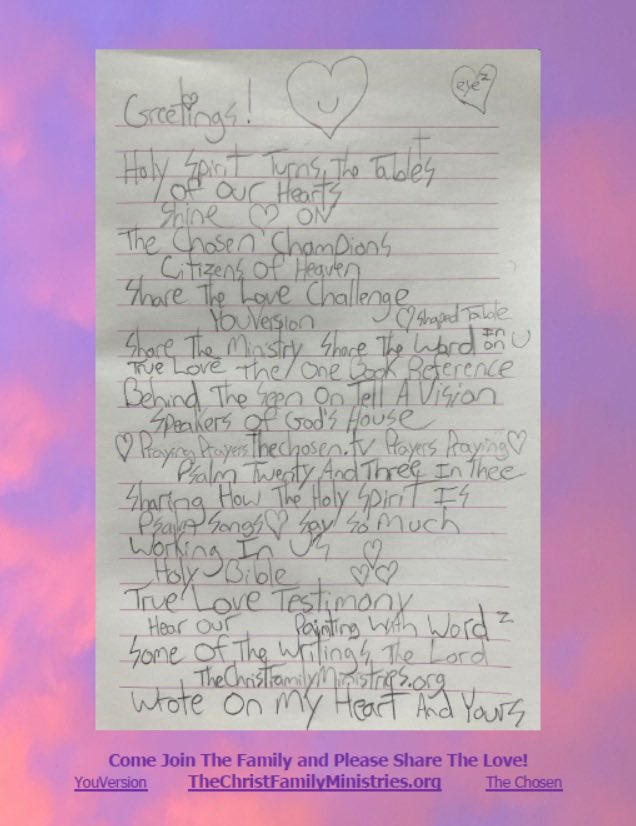 Greetings!
eye²
Holy Spirit Turns The Tables
Of Our Hearts
Shine ON
The Chosen Champions
Citizens Of Heaven
Share The Love Challenge
YouVersion Shaped Table
Share The Ministry Share The Word In on U
True Love The/One Book Reference
Behind The Seen On Tell A Vision
Speakers Of God's House
Praying Prayers Thechosen.tv Prayers Praying
Psalm Twenty And Three In Thee
Sharing How The Holy Spirit Is
Psalm Songs Say So Much
Working In Us
Holy Bible
True Love Testimony
Hear Our Painting With Word z
Some Of The Writings The Lord
TheChristFamilyMinistries.org
Wrote On My Heart And Yours
Come Join The Family and Please Share The Love!
YouVersion TheChristFamilyMinistries.org The Chosen